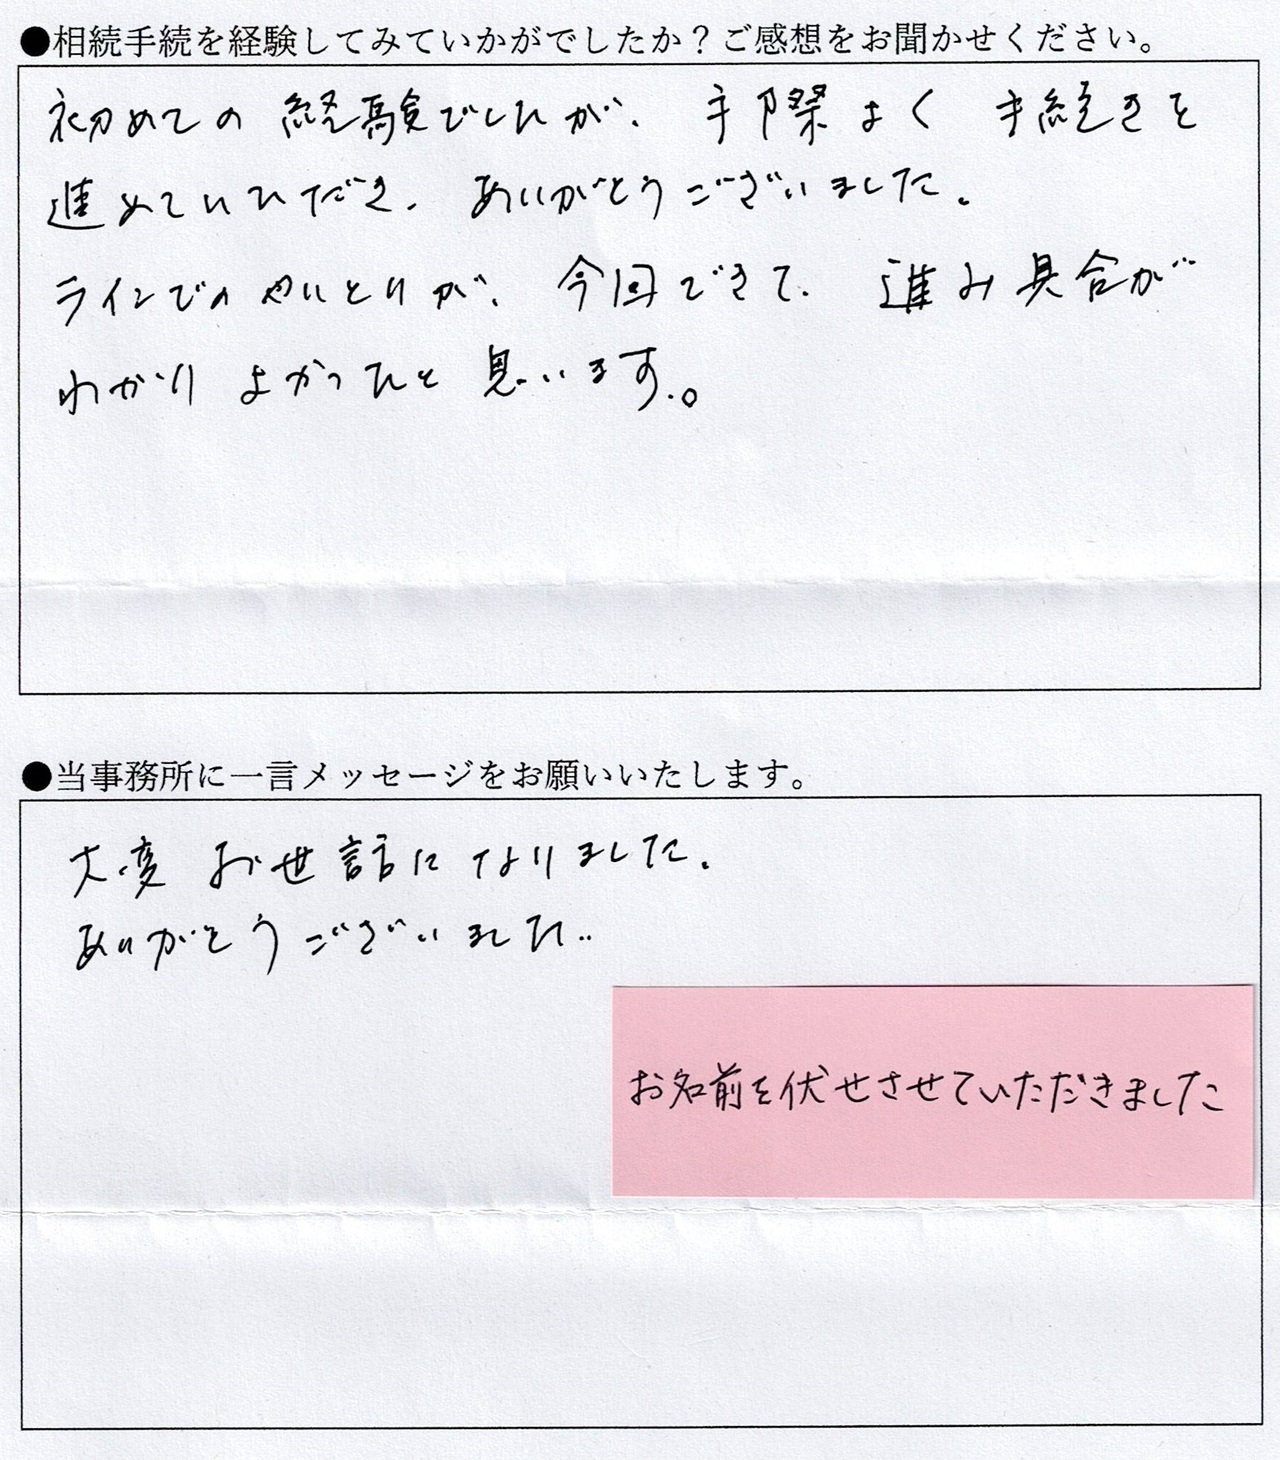 ●相続手続を経験してみていかがでしたか？ご感想をお聞かせください。
初めての経験でしたが、手際よく手続きを
進めていただき、ありがとうございました。
ラインでのやりとりが、今回できて、進み具合が
わかりよかったと思います。
●当事務所に一言メッセージをお願いいたします。
大変お世話になりました。
ありがとうございました。
お名前を伏せさせていただきました